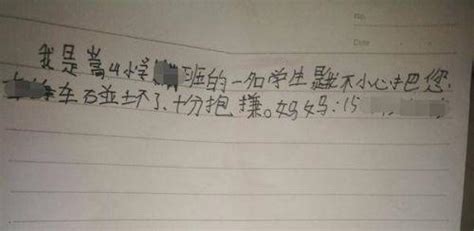 No.
Date
我是嵩山小学 班的一名学生 我不小心把您
车 碰坏了.十分抱歉。妈妈:15